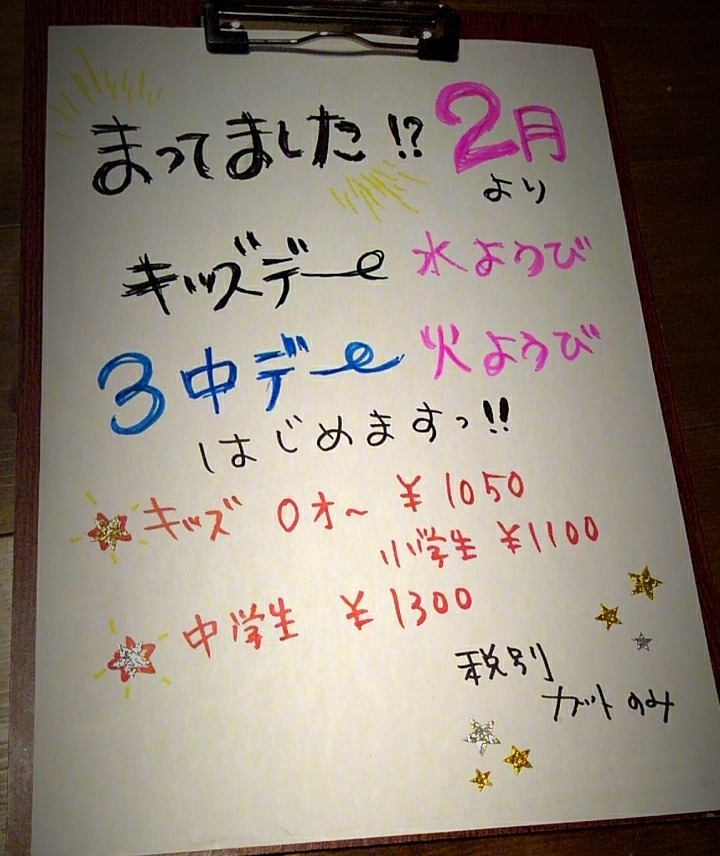 まってました!? 2月
より
キッズデー 水ようび
3中デー 火ようび
はじめますっ!!
キッズ 0才〜 ¥1050
小学生 ¥1100
中学生 ¥1300
税別
カットのみ